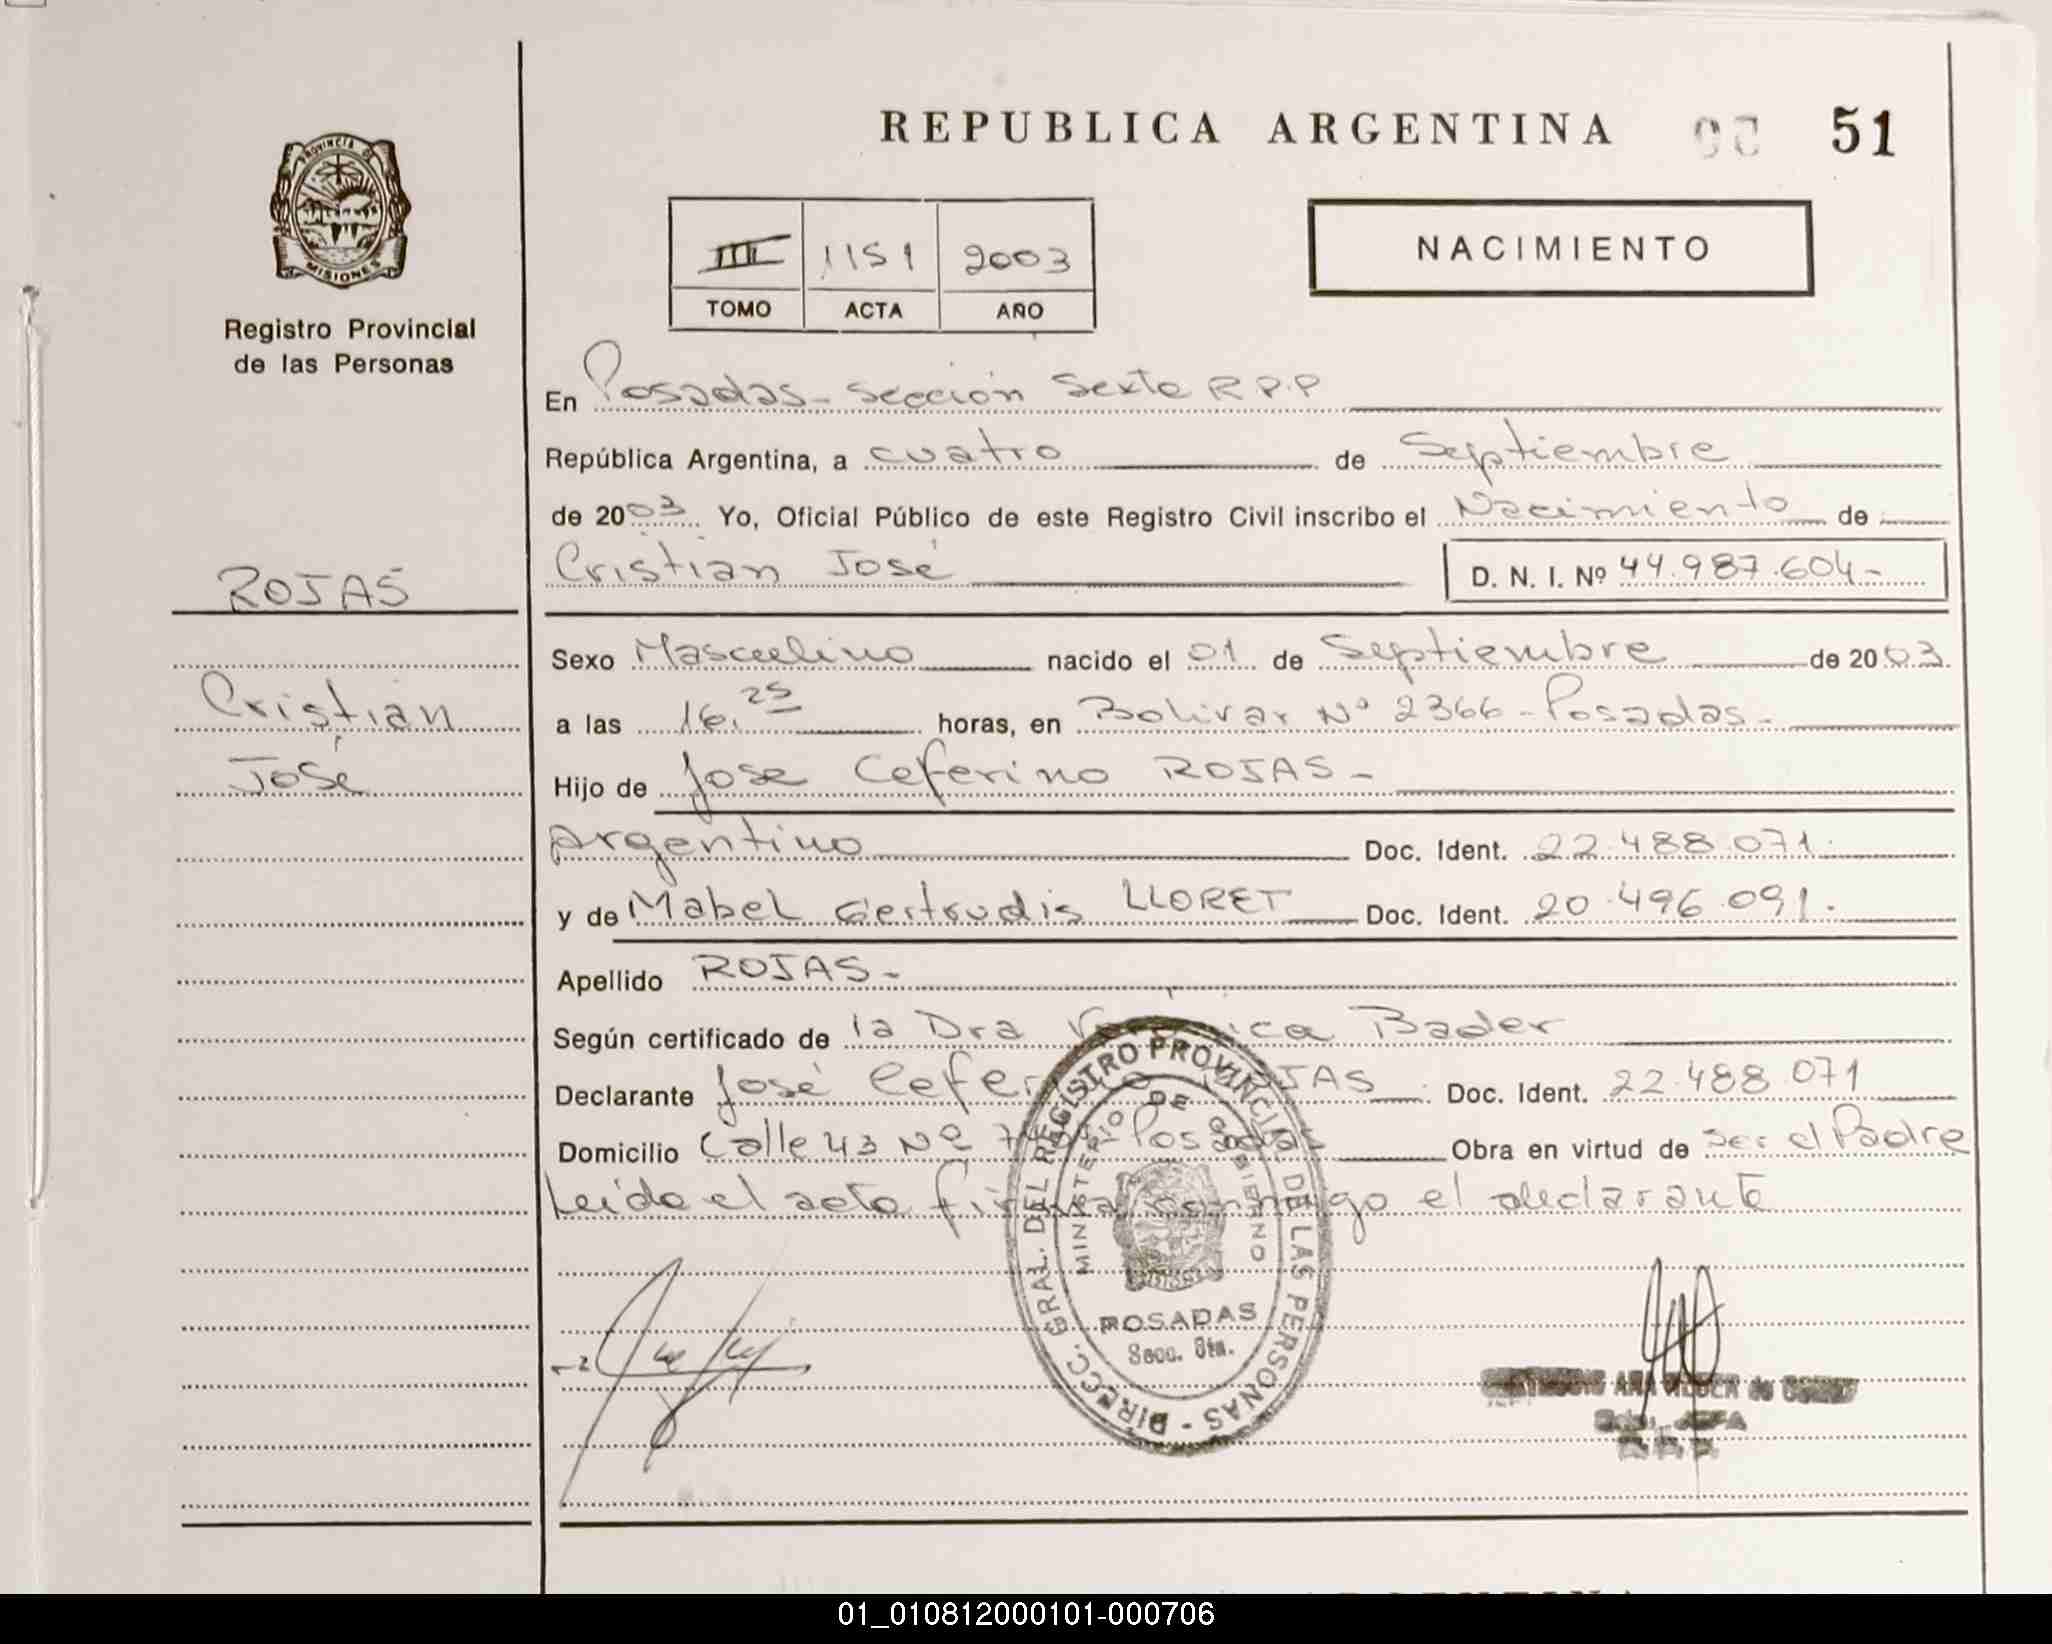 REPUBLICA ARGENTINA 00 51
PROVINCIA DE
MISIONES
Registro Provincial
de las Personas
III 1151 2003
TOMO ACTA AÑO
NACIMIENTO
En Posadas - Sección Sexta R.P.P
República Argentina, a cuatro de Septiembre
de 2003 Yo, Oficial Público de este Registro Civil inscribo el Nacimiento de
Cristian José
D. N. I. Nº 44.987.604-
ROJAS
Cristian
José
Sexo Masculino nacido el 01 de Septiembre de 2003.
a las 16.25 horas, en Bolivar Nº 2366 - Posadas -
Hijo de Jose Ceferino ROJAS -
argentino Doc. Ident. 22.488.071.
y de Mabel Gertrudis LLORET Doc. Ident. 20.496.091.
Apellido ROJAS -
Según certificado de la Dra Bader
Declarante José Doc. Ident. 22.488.071
Domicilio Calle 43 Nº Posadas Obra en virtud de Ser el Padre
Leído el acto firma conmigo el declarante
DIRECC. GRAL. DEL REGISTRO PROVINCIAL DE LAS PERSONAS -
MINISTERIO DE GOBIERNO
POSADAS
Secc. 6ta.
ANA de
JEFA
01_010812000101-000706